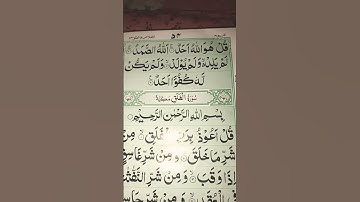 ۵۴
قُلْ هُوَ اللّٰهُ اَحَدٌ ۚ اَللّٰهُ الصَّمَدُ ۚ
لَمْ يَلِدْ ۙ وَلَمْ يُوْلَدْ ۙ وَلَمْ يَكُنْ
لَّهٗ كُفُوًا اَحَدٌ
سُوْرَةُ الْفَلَقِ مَكِّيَّةٌ
بِسْمِ اللّٰهِ الرَّحْمٰنِ الرَّحِيْمِ
قُلْ اَعُوْذُ بِرَبِّ الْفَلَقِ ۙ مِنْ
شَرِّ مَا خَلَقَ ۙ وَمِنْ شَرِّ غَاسِقٍ
اِذَا وَقَبَ ۙ وَمِنْ شَرِّ النَّفّٰثٰتِ
الْعُقَدِ ۙ وَمِنْ شَرِّ حَاسِدٍ